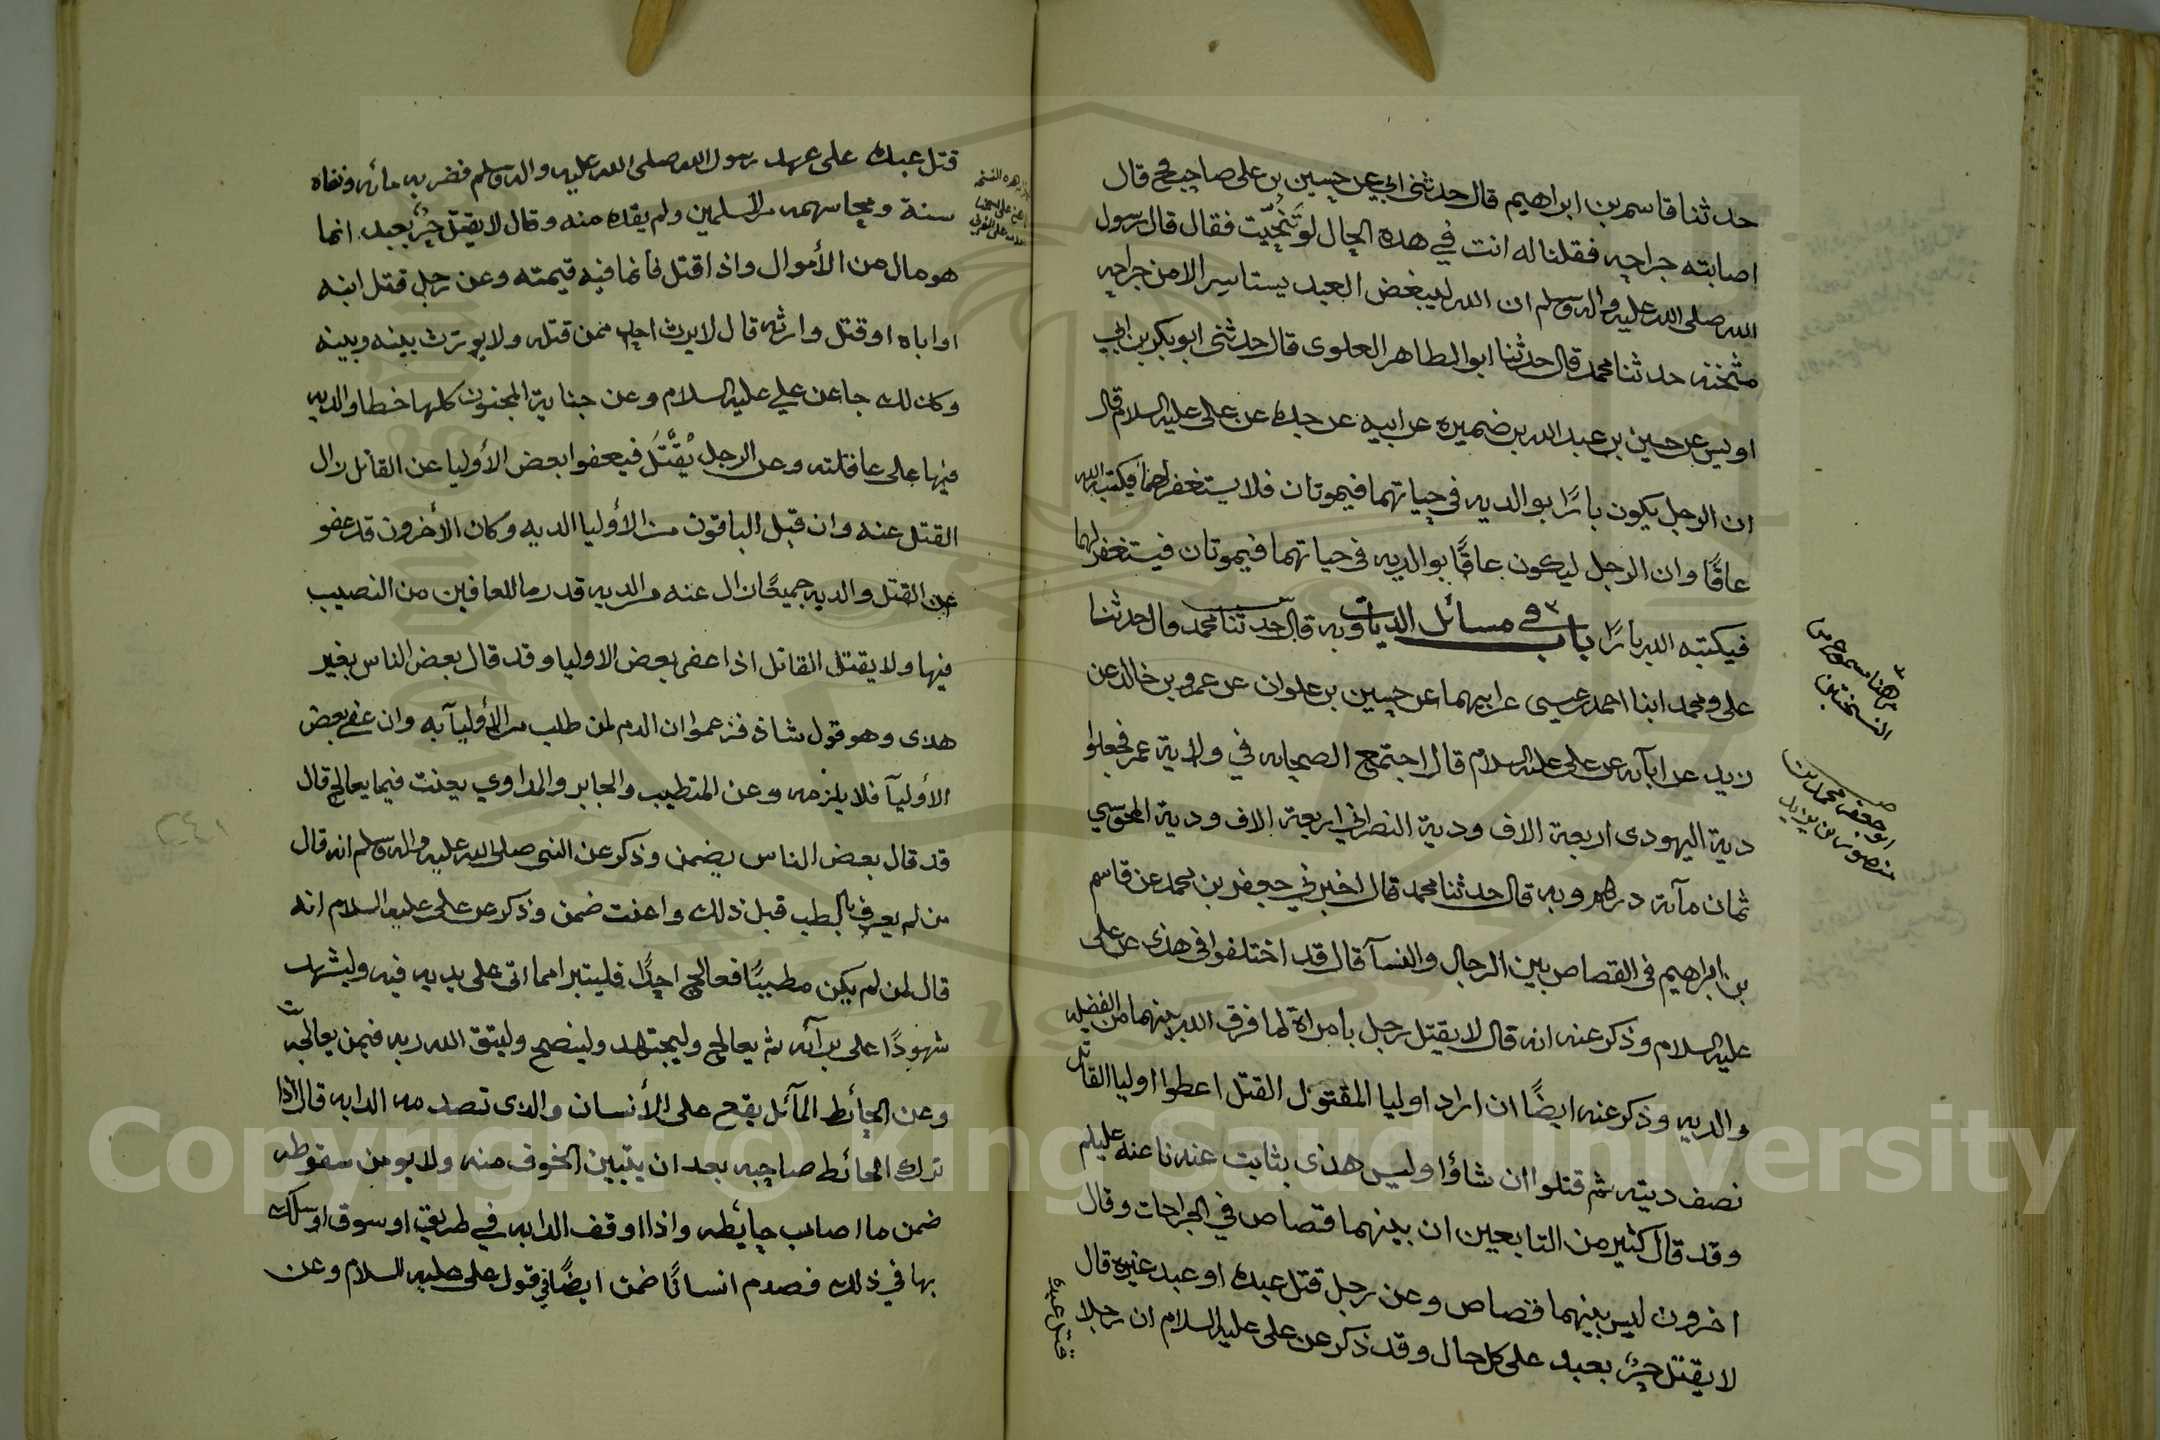 حدثنا قاسم بن ابراهيم قال حدثني ابي عن حسين بن علي صاحب فخ قال
اصابته جراحه فقلنا له انت في هذه الحال لو تَنَحّيت فقال قال رسول
الله صلى الله عليه واله وسلم ان الله ليبغض العبد يستاسر الا من جراحه
مثخنه حدثنا محمد قال حدثنا ابو الطاهر العلوي قال حدثني ابو بكر بن ابي
اويس عن حسين بن عبد الله بن ضميره عن ابيه عن جده عن علي عليه السلام قال
ان الرجل يكون بارًا بوالديه في حياتهما فيموتان فلا يستغفر لهما فيكتبه الله
عاقًا وان الرجل ليكون عاقًا بوالديه في حياتهما فيموتان فيستغفر لهما
فيكتبه الله بارًا باب في مسائل الديات وبه قال حدثنا محمد قال حدثنا
علي ومحمد ابنا احمد بن عيسى عن ابيهما عن حسين بن علوان عن عمرو بن خالد عن
زيد عن ابآئه عن علي عليه السلام قال اجتمع الصحابه في ولاية عمر فجعلوا
دية اليهودي اربعة الاف ودية النصراني اربعة الاف ودية المجوسي
ثمان مآئة درهم وبه قال حدثنا محمد قال اخبرني جعفر بن محمد عن قاسم
بن ابراهيم في القصاص بين الرجال والنسآ قال قد اختلفوا في هذى عن علي
عليه السلام وذكر عنه انه قال لا يقتل رجل بامراة لما فرق الله بينهما من الفضيله
والديه وذكر عنه ايضًا ان اراد اوليا المقتول القتل اعطوا اوليا القاتل
نصف ديته ثم قتلوا ان شاؤا وليس هذى بثابت عنه
وقد قال كثير من التابعين ان بينهما قصاص في الجراحات وقال
اخرون ليس بينهما قصاص وعن رجل قتل عبده او عبد غيره قال
لا يقتل حرٌ بعبد على كل حال وقد ذكر عن علي عليه السلام ان رجلا
قتل عبده
ابو جعفر محمد بن
منصور بن يزيد
قتل عبده على عهد رسول الله صلى الله عليه واله وسلم فضربه مائه ونفاه
سنة ومحا سهمه من المسلمين ولم يقده منه وقال لا يقتل حرٌ بعبد انما
هو مال من الأموال واذا قتل فأنما فيه قيمته وعن رجل قتل ابنه
او اباه او قتل وارثه قال لا يرث احد ممن قتله ولا يورث بينه وبينه
وكذلك جا عن علي عليه السلام وعن جناية المجنون كلها خطا والديه
فيها على عاقلته وعن الرجل يُقتَل فيعفوا بعض الأوليا عن القاتل زال
القتل عنه وان قبل الباقون من الأوليا الديه وكان الأخرون قد عفو
عن القتل والديه جميعًا زال عنه من الديه قدر ما للعافين من النصيب
فيها ولا يقتل القاتل اذا عفى بعض الاوليا وقد قال بعض الناس بغير
هذى وهو قول شاذ فزعموا ان الدم لمن طلب من الأوليآ به وان عفى بعض
الأوليآ فلا يلزمه وعن المتطبب والجابر والمداوي يعنت فيما يعالج قال
قد قال بعض الناس يضمن وذكر عن النبي صلى الله عليه واله وسلم انه قال
من لم يعرف بالطب قبل ذلك واعنت ضمن وذكر عن علي عليه السلام انه
قال لمن لم يكن مطببًا فعالج احدًا فليتبرا مما اتى على يديه فيه وليشهد
شهودًا على برآئه ثم يعالج وليجتهد ولينصح وليتق الله ربه فيمن يعالجه
وعن الحائط المآئل يقع على الأنسان والذي تصدمه الدابه قال اذا
ترك الحائط صاحبه بعد ان يتبين الخوف منه ولا يومن سقوطه
ضمن ما اصاب حايطه واذا اوقف الدابه في طريق او سوق او سلك
بها في ذلك فصدم انسانًا ضمن ايضًا في قول علي عليه السلام وعن
Copyright © King Saud University